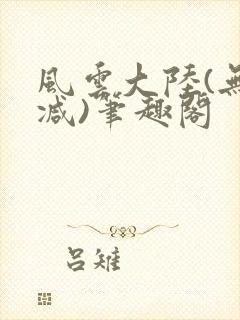 風雲大陸(無
减)筆趣閣
呂雉